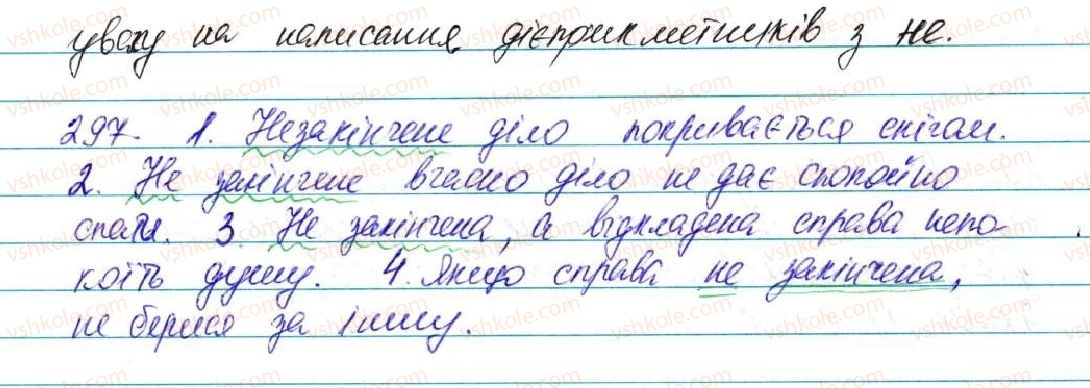 увагу на написання дієприкметників з не.
297. 1. Незакінчене діло покривається снігом.
2. Не закінчене вчасно діло не дає спокійно
спати. 3. Не закінчена, а відкладена справа непо-
коїть душу. 4. Якщо справа не закінчена,
не берися за іншу.